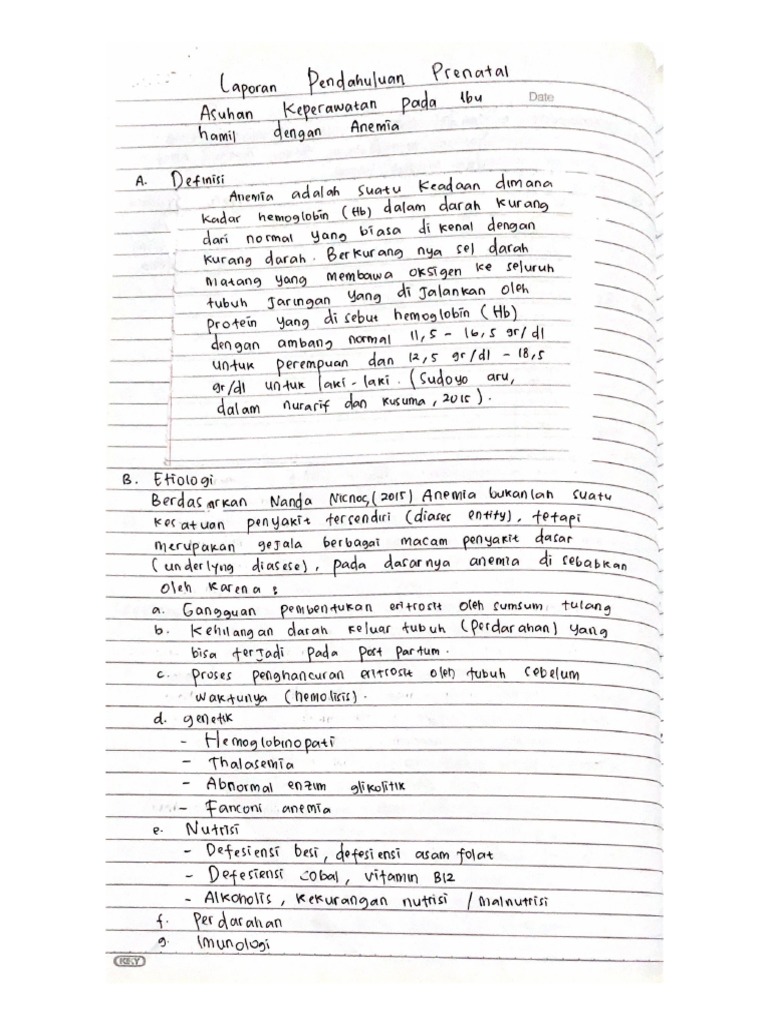 Laporan Pendahuluan Prenatal
Asuhan Keperawatan pada Ibu
Date
hamil dengan Anemia
A. Definisi
Anemia adalah suatu keadaan dimana
kadar hemoglobin (Hb) dalam darah kurang
dari normal yang biasa di kenal dengan
kurang darah. Berkurang nya sel darah
matang yang membawa oksigen ke seluruh
tubuh jaringan yang di jalankan oleh
protein yang di sebut hemoglobin (Hb)
dengan ambang normal 11,5 - 16,5 gr/dl
untuk perempuan dan 12,5 gr/dl - 18,5
gr/dl untuk laki-laki. (Sudoyo aru,
dalam nurarif dan kusuma, 2015).
B. Etiologi
Berdasarkan Nanda Nicnoc, (2015) Anemia bukanlah suatu
kesatuan penyakit tersendiri (diases entity), tetapi
merupakan gejala berbagai macam penyakit dasar
(underlyng diasese), pada dasarnya anemia di sebabkan
oleh karena :
a. Gangguan pembentukan eritrosit oleh sumsum tulang
b. Kehilangan darah keluar tubuh (perdarahan) yang
bisa terjadi pada post partum.
c. proses penghancuran eritrosit oleh tubuh sebelum
waktunya (hemolisis).
d. genetik
- Hemoglobinopati
- Thalasemia
- Abnormal enzim glikolitik
- Fanconi anemia
e. Nutrisi
- Defesiensi besi, defesiensi asam folat
- Defesiensi cobal, vitamin B12
- Alkoholis, kekurangan nutrisi / malnutrisi
f. Perdarahan
g. Imunologi
KEY